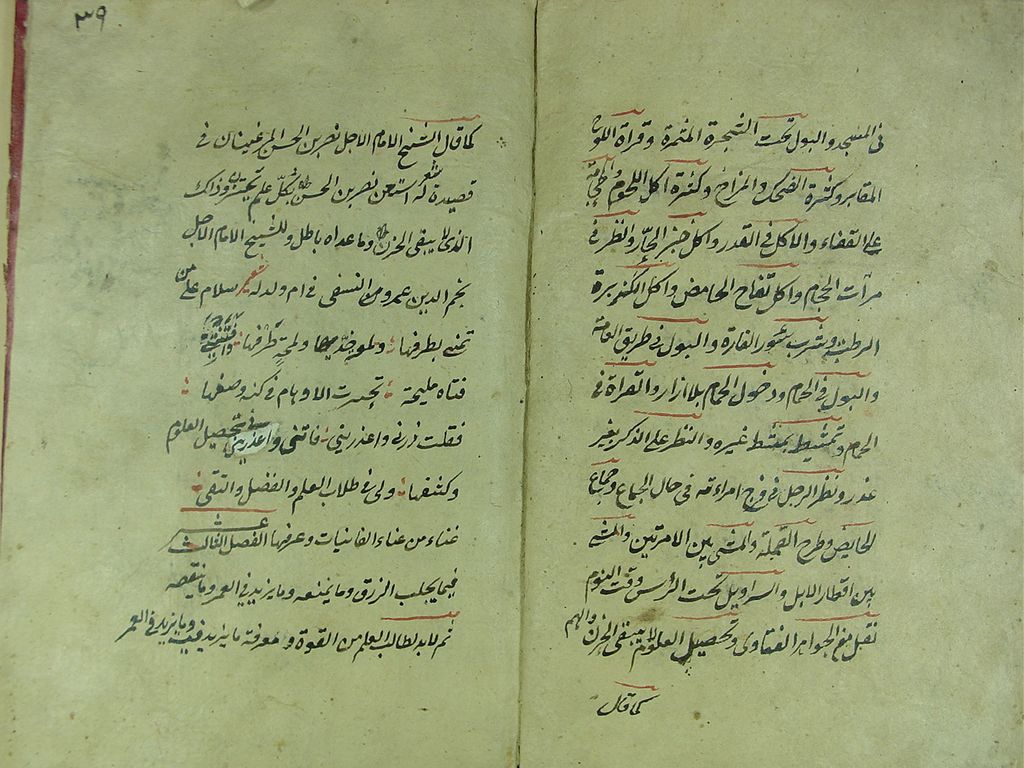 فى المسجد والبول تحت الشجرة المثمرة وقراة اللوح
المقابر وكثرة الضحك والمزاح وكثرة اكل اللحوم
على القفاء والاكل فى القدر واكل خبز الحار والنظر فى
مرأت الحجام واكل تفاح الحامض واكل الكزبرة
الرطب وشرب سور الفارة والبول فى طريق العامة
والبول فى الحمام ودخول الحمام بلا ازار والقراة فى
الحمام وتمشيط بمشط غيره والنظر على الذكر بغير
عذر ونظر الرجل فى فرج امراءته فى حال الجماع وجماع
الحايض وطرح القملة والمشى بين الامرتين والمشى
بين اقطار الابل والسراويل تحت الرأس وقت النوم
نقل من الجواهر الفتاوى وتحصيل العلوم لا يبقى الحزن والهم
كما قال
٣٩
كما قال الشيخ الامام الاجل نصر بن الحسن المرغينان فى
قصيدة له شعر استعن نصر بن الحسن بكل علم يحتزن وذاك
الذى لا يبقى الحزن وما عداه باطل وللشيخ الامام الاجل
نجم الدين عمر النسفى فى ام ولد له شعر سلام على من
تمنى بطرفها ولمع خديها ولمحة طرفها
فتاه مليحة تحيرت الاوهام فى كنه وصفها
فقلت ذرنى واعذرينى فاننى فى تحصيل العلوم
وكشفها ولى فى طلاب العلم والفضل والتقى
غناء من غناء الغانيات وعرفها الفصل الثالث عشر
فيما يجلب الرزق وما يمنعه وما يزيد فى العمر وما ينقصه
ثم لابد لطالب العلم من القوة ومعرفة ما يزيد فيه وما يزيد فى العمر